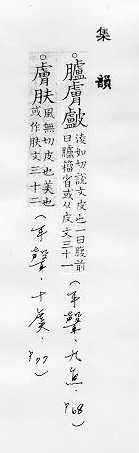 集韻
○臚膚
凌如切說文皮也一曰腹前
曰臚籀省或从皮文三十一
(平聲·九魚·P68)
○膚肤
風無切皮也美也
或作肤文三十二
(平聲·十虞·P77)